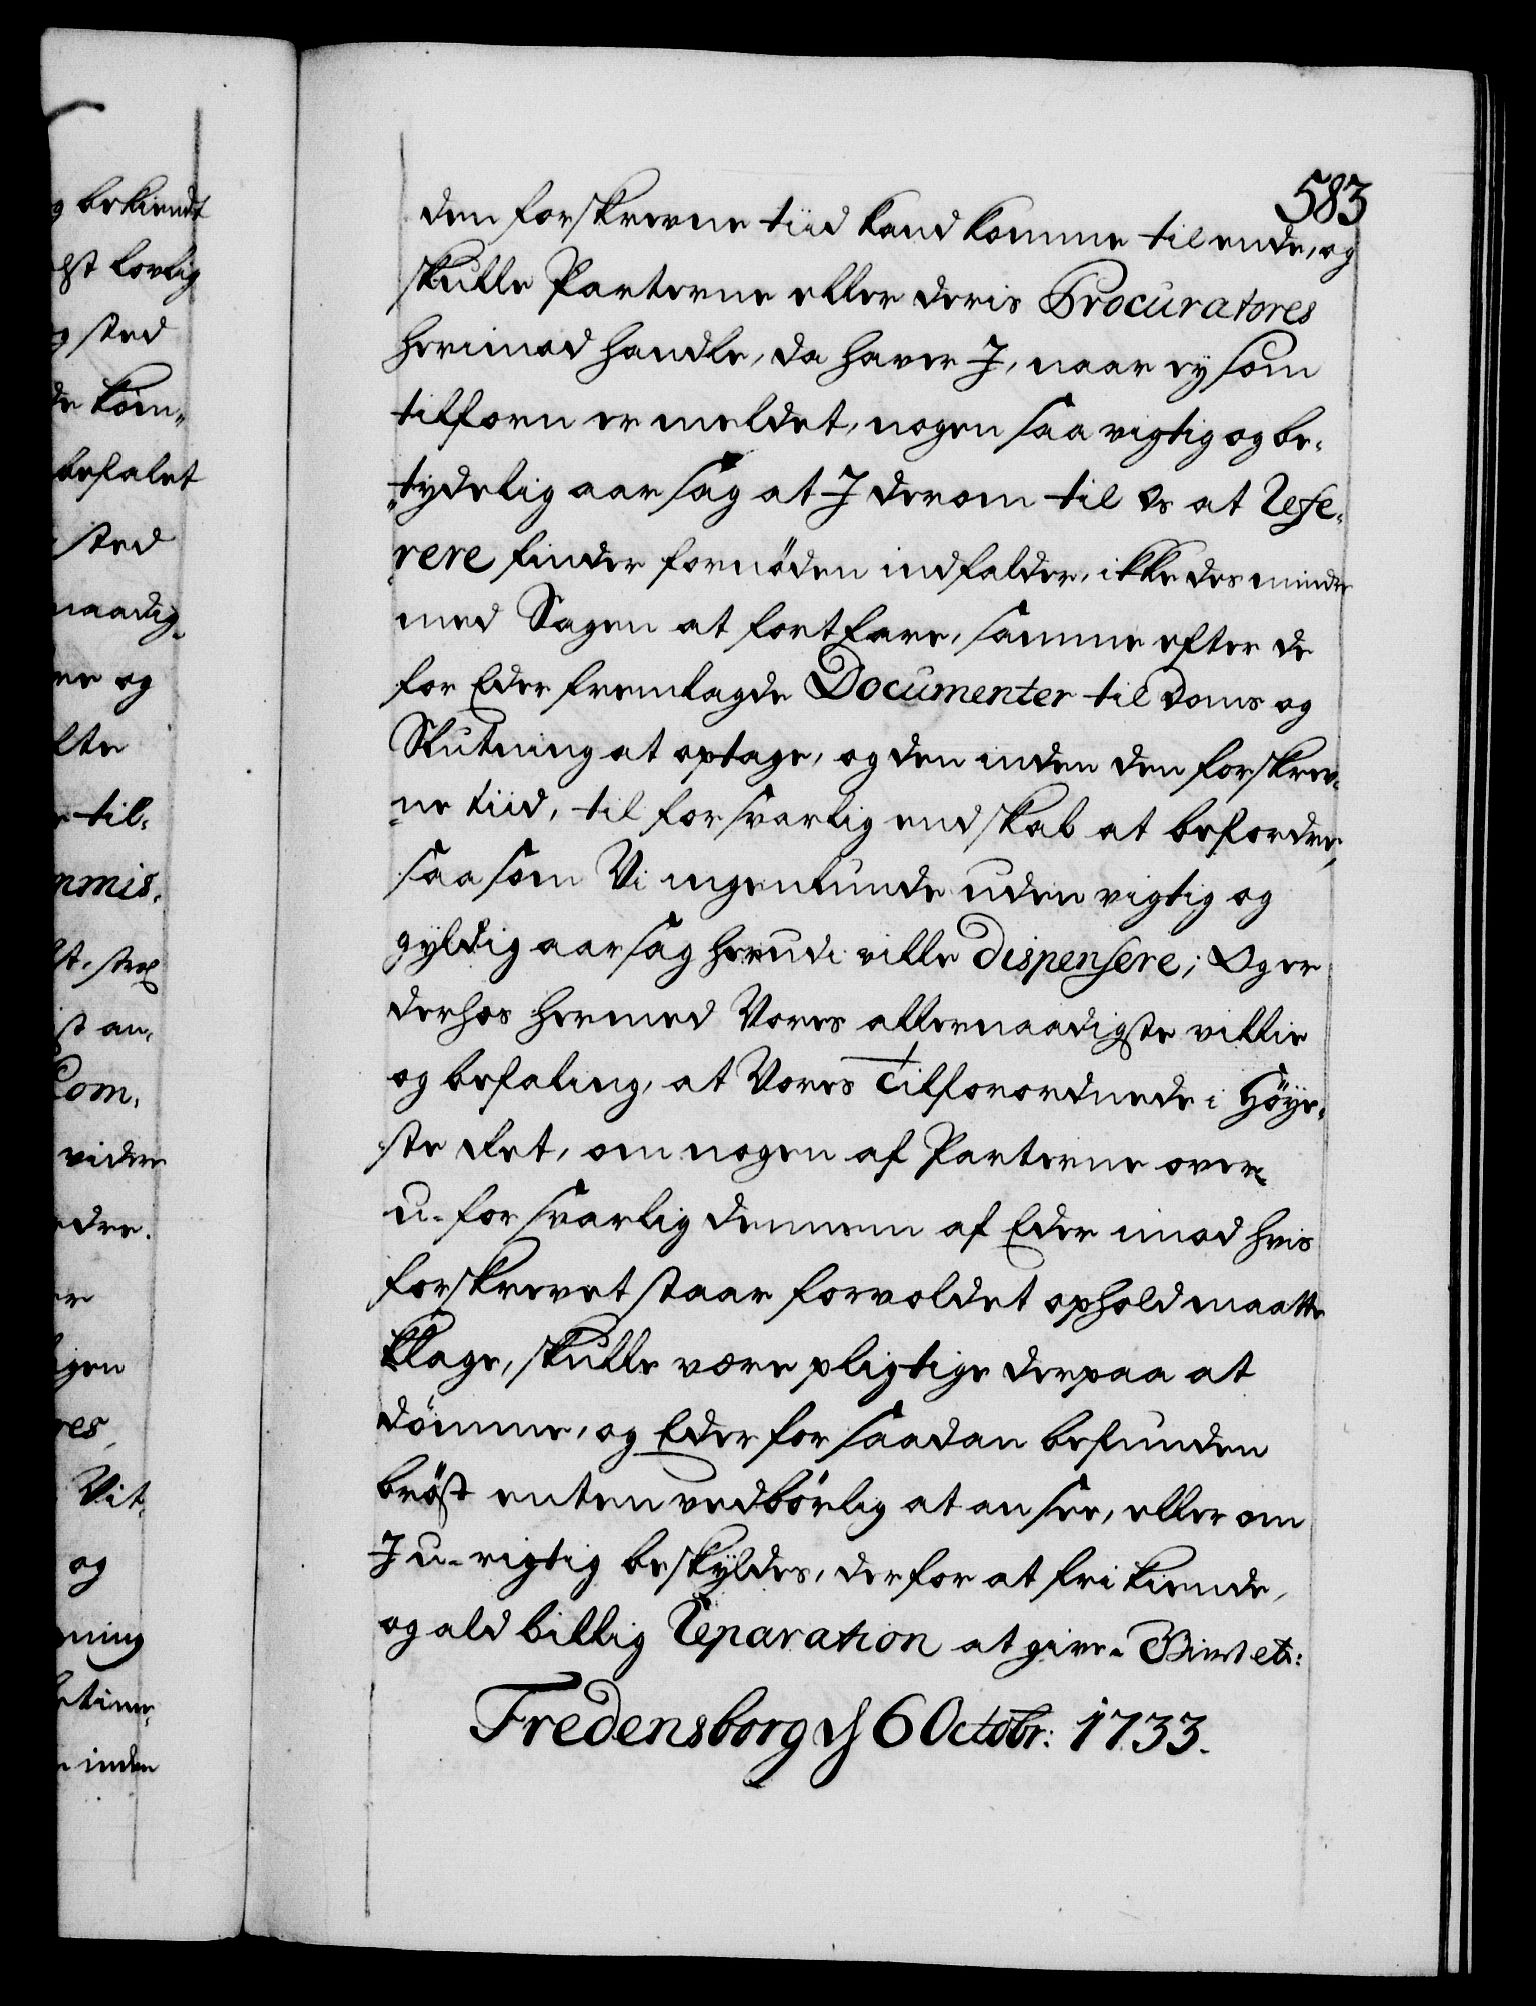 583
den forskrevne tiid kand komme til ende, og
skulle Parterne eller deris Procuratores
herimod handle, da haver J, naar ey som
tilforn er meldet, nogen saa vigtig og be-
tydelig aarsag at J derom til Os at Refe-
rere finder fornöden indfalder, ikke des mindre
med Sagen at fortfare, samme efter de
for Eder fremlagde Documenter til Doms og
Slutning at optage, og den inden den forskrev-
ne tiid, til forsvarlig endskab at befordre,
saasom Vi ingenlunde uden vigtig og
gyldig aarsag herudi ville dispensere; Og er
derhos hermed Vores allernaadigste villie
og befaling, at Vores Tilforordnede i Höye-
ste Ret, om nogen af Parterne over
u-forsvarlig dennem af Eder imod hvis
forskrevet staar forvoldet ophold maatte
klage, skulle være pligtige derpaa at
dömme, og Eder for saadan befunden
bröst enten vedbörlig at ansee, eller om
J u-rigtig beskyldes, derfor at frikiende,
og ald billig Reparation at give. Bim etc:
Fredensborg d 6 Octobr: 1733.
g bekiendt
lst lovlig
g sted
de kom-
befalet
sted
naadig-
re og
lte
til-
mmis-
st, strax
st an-
Com-
videre
edre.
er
gen
res,
Vit-
og
ning
inden